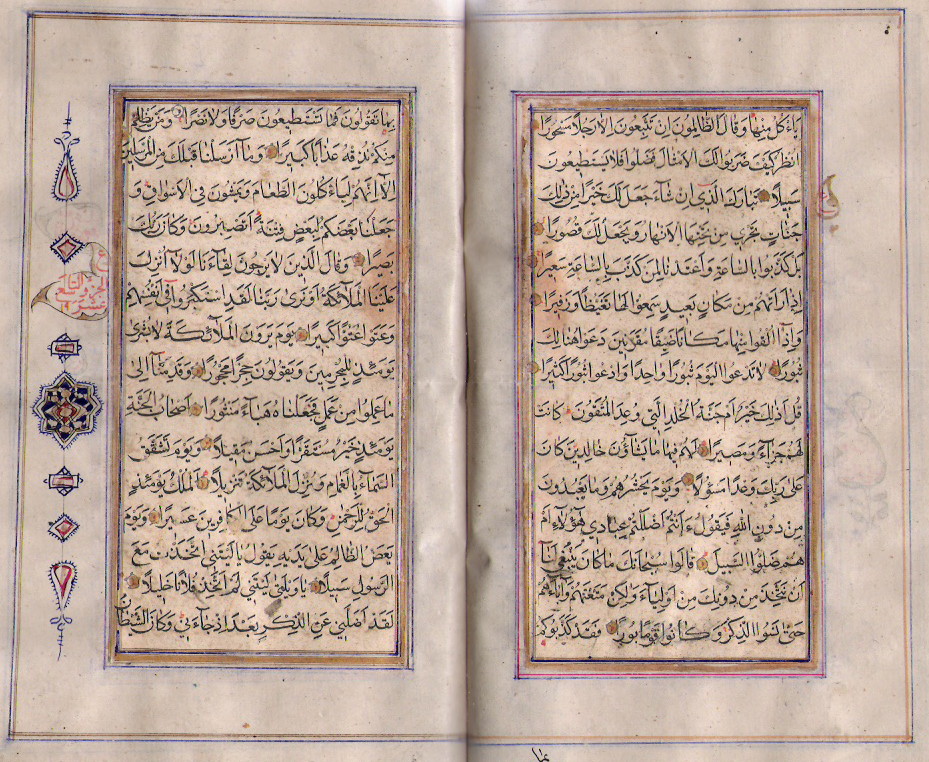 يأكل منها وقال الظالمون إن تتبعون إلا رجلا مسحورا
انظر كيف ضربوا لك الأمثال فضلوا فلا يستطيعون
سبيلا تبارك الذي إن شاء جعل لك خيرا من ذلك
جنات تجري من تحتها الأنهار ويجعل لك قصورا
بل كذبوا بالساعة وأعتدنا لمن كذب بالساعة سعيرا
إذا رأتهم من مكان بعيد سمعوا لها تغيظا وزفيرا
وإذا ألقوا منها مكانا ضيقا مقرنين دعوا هنالك
ثبورا لا تدعوا اليوم ثبورا واحدا وادعوا ثبورا كثيرا
قل أذلك خير أم جنة الخلد التي وعد المتقون كانت
لهم جزاء ومصيرا لهم فيها ما يشاؤن خالدين كان
على ربك وعدا مسؤلا ويوم يحشرهم وما يعبدون
من دون الله فيقول ءأنتم أضللتم عبادي هؤلاء أم
هم ضلوا السبيل قالوا سبحانك ما كان ينبغي لنا
أن نتخذ من دونك من أولياء ولكن متعتهم وآباءهم
حتى نسوا الذكر وكانوا قوما بورا فقد كذبوكم
بما تقولون فما تستطيعون صرفا ولا نصرا ومن يظلم
منكم نذقه عذابا كبيرا وما أرسلنا قبلك من المرسلين
إلا إنهم ليأكلون الطعام ويمشون في الأسواق و
جعلنا بعضكم لبعض فتنة أتصبرون وكان ربك
بصيرا وقال الذين لا يرجون لقاءنا لولا أنزل
علينا الملائكة أو نرى ربنا لقد استكبروا في أنفسهم
وعتوا عتوا كبيرا يوم يرون الملائكة لا بشرى
يومئذ للمجرمين ويقولون حجرا محجورا وقدمنا إلى
ما عملوا من عمل فجعلناه هباء منثورا أصحاب الجنة
يومئذ خير مستقرا وأحسن مقيلا ويوم تشقق
السماء بالغمام ونزل الملائكة تنزيلا الملك يومئذ
الحق للرحمن وكان يوما على الكافرين عسيرا ويوم
يعض الظالم على يديه يقول يا ليتني اتخذت مع
الرسول سبيلا يا ويلتى ليتني لم أتخذ فلانا خليلا
لقد أضلني عن الذكر بعد إذ جاءني وكان الشيطا
الجزء التاسع
عشر
بما